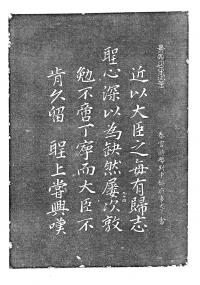 近以大臣之每有歸志
聖心深以為缺然屢次敦
勉不啻丁寧而大臣不
肯久留 聖上嘗興嘆